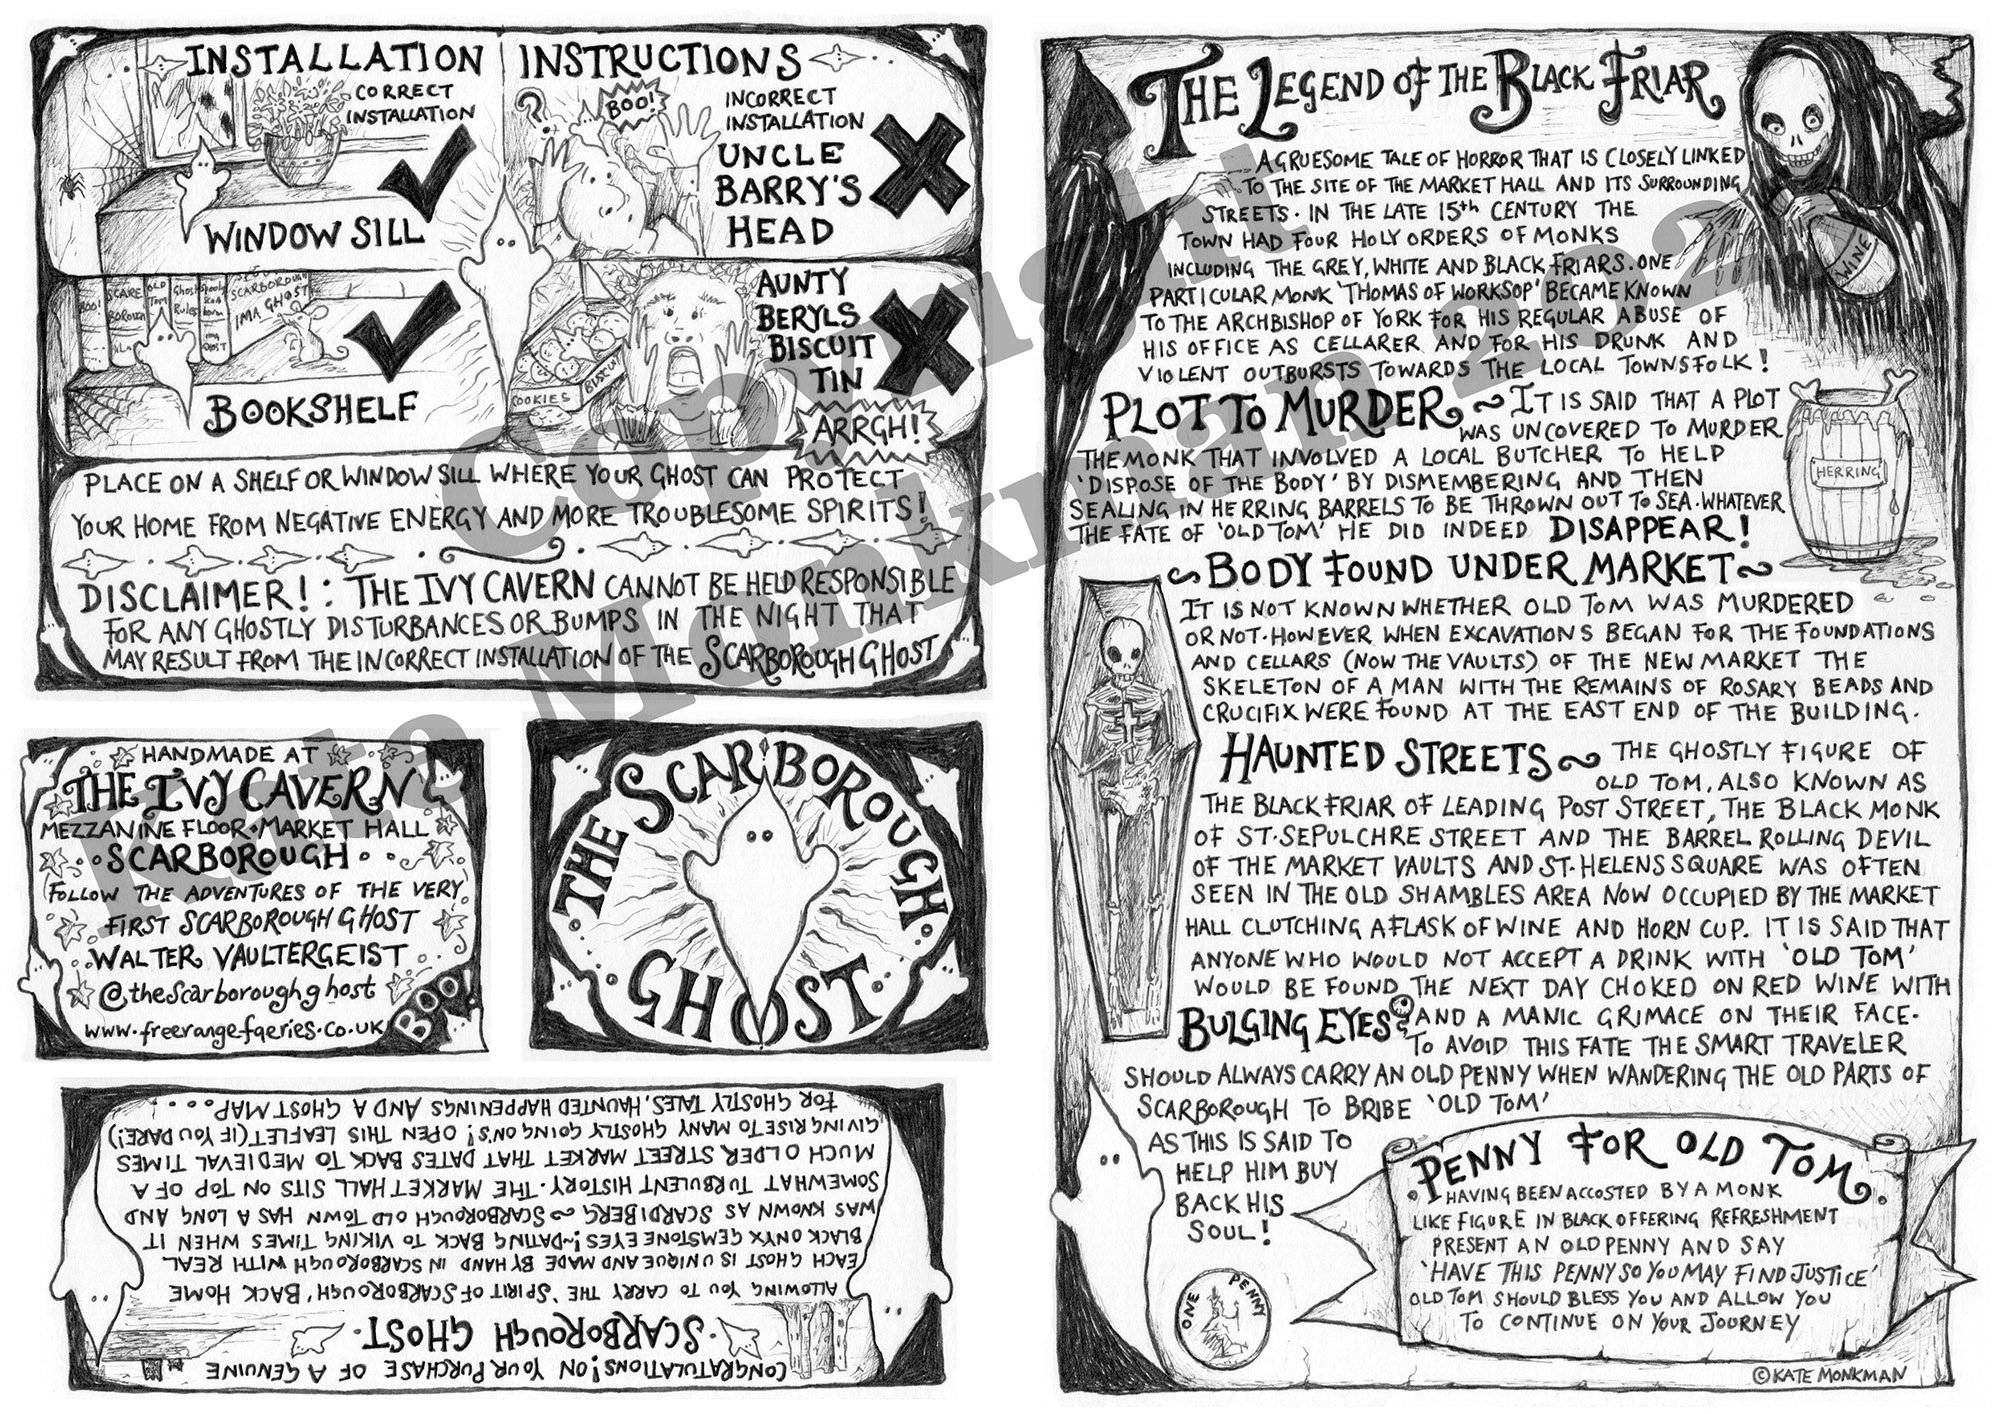 INSTALLATION INSTRUCTIONS
CORRECT
INSTALLATION
WINDOW SILL
?
BOO!
INCORRECT
INSTALLATION
UNCLE
BARRY'S
HEAD
BOO!
SCARE
BOROUGH
OLD
TOM
Ghost
Rules
SCARBOROUGH
IMA GHOST
BOOKSHELF
COOKIES
BISCUIT
AUNTY
BERYLS
BISCUIT
TIN
ARRGH!
PLACE ON A SHELF OR WINDOW SILL WHERE YOUR GHOST CAN PROTECT
YOUR HOME FROM NEGATIVE ENERGY AND MORE TROUBLESOME SPIRITS!
DISCLAIMER!: THE IVY CAVERN CANNOT BE HELD RESPONSIBLE
FOR ANY GHOSTLY DISTURBANCES OR BUMPS IN THE NIGHT THAT
MAY RESULT FROM THE INCORRECT INSTALLATION OF THE SCARBOROUGH GHOST
HANDMADE AT
THE IVY CAVERN
MEZZANINE FLOOR • MARKET HALL
SCARBOROUGH
FOLLOW THE ADVENTURES OF THE VERY
FIRST SCARBOROUGH GHOST
WALTER VAULTERGEIST
@thescarboroughghost
www.freerangefaeries.co.uk
BOO!
THE SCARBOROUGH
GHOST
CONGRATULATIONS! ON YOUR PURCHASE OF A GENUINE
• SCARBOROUGH GHOST •
ALLOWING YOU TO CARRY THE 'SPIRIT OF SCARBOROUGH', BACK HOME
EACH GHOST IS UNIQUE AND MADE BY HAND IN SCARBOROUGH WITH REAL
BLACK ONYX GEMSTONE EYES! ~ DATING BACK TO VIKING TIMES WHEN IT
WAS KNOWN AS SCARDIBERG ~ SCARBOROUGH OLD TOWN HAS A LONG AND
SOMEWHAT TURBULENT HISTORY. THE MARKET HALL SITS ON TOP OF A
MUCH OLDER STREET MARKET THAT DATES BACK TO MEDIEVAL TIMES
GIVING RISE TO MANY GHOSTLY GOING ON'S! OPEN THIS LEAFLET (IF YOU DARE!)
FOR GHOSTLY TALES, HAUNTED HAPPENINGS AND A GHOST MAP.....
THE LEGEND OF THE BLACK FRIAR
A GRUESOME TALE OF HORROR THAT IS CLOSELY LINKED
TO THE SITE OF THE MARKET HALL AND ITS SURROUNDING
STREETS. IN THE LATE 15th CENTURY THE
TOWN HAD FOUR HOLY ORDERS OF MONKS
INCLUDING THE GREY, WHITE AND BLACK FRIARS. ONE
PARTICULAR MONK 'THOMAS OF WORKSOP' BECAME KNOWN
TO THE ARCHBISHOP OF YORK FOR HIS REGULAR ABUSE OF
HIS OFFICE AS CELLARER AND FOR HIS DRUNK AND
VIOLENT OUTBURSTS TOWARDS THE LOCAL TOWNSFOLK!
WINE
PLOT TO MURDER ~ IT IS SAID THAT A PLOT
WAS UNCOVERED TO MURDER
THE MONK THAT INVOLVED A LOCAL BUTCHER TO HELP
'DISPOSE OF THE BODY' BY DISMEMBERING AND THEN
SEALING IN HERRING BARRELS TO BE THROWN OUT TO SEA. WHATEVER
THE FATE OF 'OLD TOM' HE DID INDEED DISAPPEAR!
HERRING
~ BODY FOUND UNDER MARKET ~
IT IS NOT KNOWN WHETHER OLD TOM WAS MURDERED
OR NOT. HOWEVER WHEN EXCAVATIONS BEGAN FOR THE FOUNDATIONS
AND CELLARS (NOW THE VAULTS) OF THE NEW MARKET THE
SKELETON OF A MAN WITH THE REMAINS OF ROSARY BEADS AND
CRUCIFIX WERE FOUND AT THE EAST END OF THE BUILDING.
HAUNTED STREETS ~ THE GHOSTLY FIGURE OF
OLD TOM, ALSO KNOWN AS
THE BLACK FRIAR OF LEADING POST STREET, THE BLACK MONK
OF ST. SEPULCHRE STREET AND THE BARREL ROLLING DEVIL
OF THE MARKET VAULTS AND ST. HELENS SQUARE WAS OFTEN
SEEN IN THE OLD SHAMBLES AREA NOW OCCUPIED BY THE MARKET
HALL CLUTCHING A FLASK OF WINE AND HORN CUP. IT IS SAID THAT
ANYONE WHO WOULD NOT ACCEPT A DRINK WITH 'OLD TOM'
WOULD BE FOUND THE NEXT DAY CHOKED ON RED WINE WITH
BULGING EYES AND A MANIC GRIMACE ON THEIR FACE.
TO AVOID THIS FATE THE SMART TRAVELER
SHOULD ALWAYS CARRY AN OLD PENNY WHEN WANDERING THE OLD PARTS OF
SCARBOROUGH TO BRIBE 'OLD TOM'
AS THIS IS SAID TO
HELP HIM BUY
BACK HIS
SOUL!
ONE PENNY
PENNY FOR OLD TOM
HAVING BEEN ACCOSTED BY A MONK
LIKE FIGURE IN BLACK OFFERING REFRESHMENT
PRESENT AN OLD PENNY AND SAY
'HAVE THIS PENNY SO YOU MAY FIND JUSTICE'
OLD TOM SHOULD BLESS YOU AND ALLOW YOU
TO CONTINUE ON YOUR JOURNEY
© KATE MONKMAN
Copyright
Kate Monkman 202